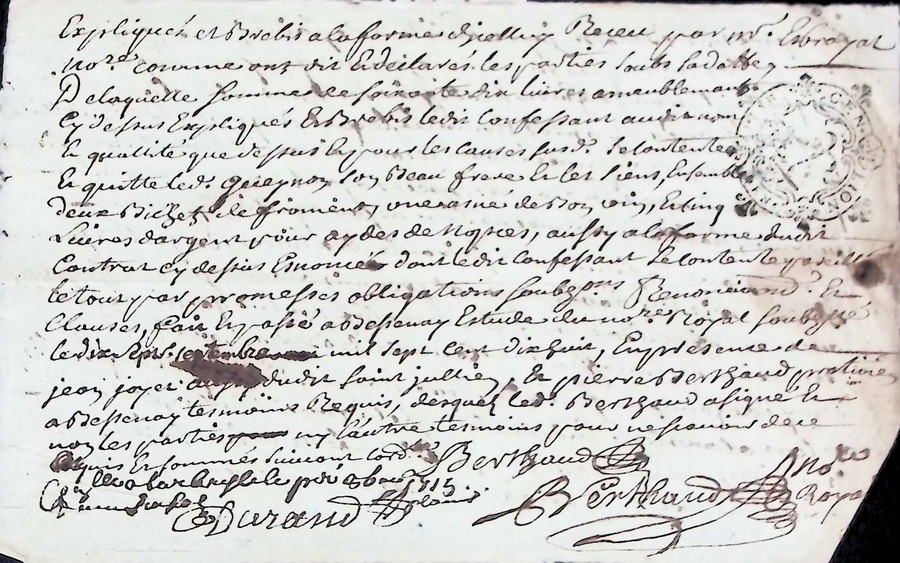 Expliqués et Brebis a la forme dicelluy Receu par mr. Esbrayat
nore. comme ont dit Et déclarés les parties soubs sa datte,
De laquelle somme de soixante dix livres ameublemant
Cy dessus Expliqués Et Brebis ledit Confessant audit nom
Et quallité que dessus Et pour les causes susd. se contente
Et quitte led. Gueynon son Beau frere Et les siens, Ensemble
deux Bichets de froment, une anée de Bon vin, Et cinq
Livres dargent pour aydes de Nopces, aussy a la forme dudit
Contrat cy dessus Enoncés dont ledit Confessant se contente
le tout par promesses obligations soubzons Renonciaond. Et
Clauses, fait Et passé a Bessenay Estude du nore. Royal soubzné
le dix sept. septembre mil sept cent dix huit, En presence de
jean joyet dudit saint jullien, Et pierre Berthaud praticien
a Bessenay temoins Requis, desquels led. Berthaud a signé Et
non les parties ny lautre temoins pour ne scavoir de ce
Requis Et sommés suivant lord.
Berthaud
Berthaud nore Royal
Durand